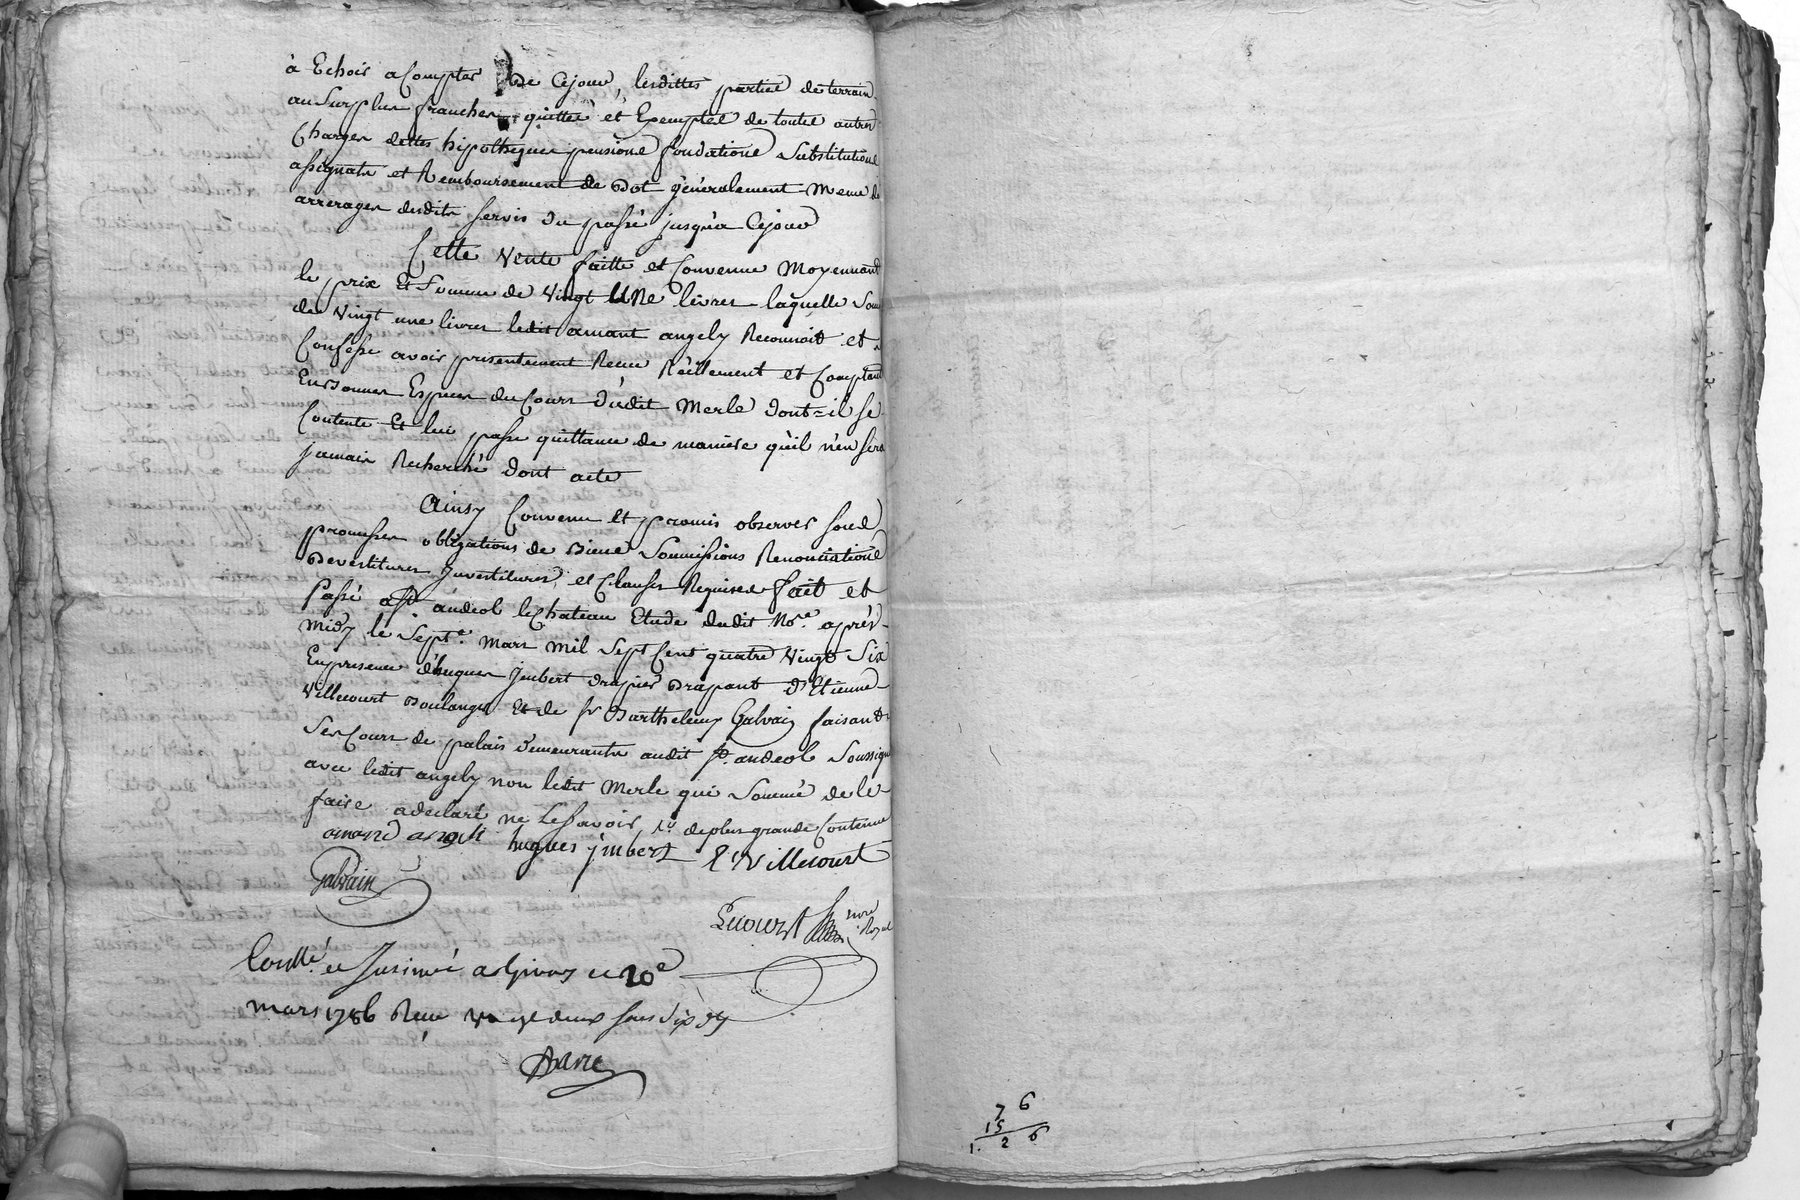 à Echoir acompter de cejour, lesdittes parties de terrain
au surplus franches quittes et Exemptes de toutes autres
charges dettes hipotheques pensions fondations substitutions
assignats et Remboursement de Dot géneralement meme des
arrerages desdits servis du passé jusqu'a cejour
Cette vente faitte et convenue moyennant
le prix et somme de vingt une livres laquelle som
de vingt une livres ledit amant angely Reconnoit et
confesse avoir presentement Receu Réellement et comptant
En bonnes Especes du cours dudit Merle dont=il se
contente et luy passe quittance de maniere qu'il n'en sera
jamais Recherché dont acte
Ainsy convenu et promis observer sous
promesses obligations de biens soumissions Renonciations
Devestitures Investitures, et clauses Requises fait et
passé a St. andeol le chateau Etude dudit No.re après
midy le sept.e mars mil sept cent quatre vingt six
En presence d'hugues Jmbert drapier drapant d'Etienne
Villecourt Boulanger et de sr Barthelemy Galvain faisant
ses cours de palais demeurants audit St. andeol soussignés
avec ledit angely non ledit Merle qui sommé de le
faire a declaré ne le savoir, de plus grande contenue
amand angeli hugues jmbert E Villecourt
Galvain
Lecourt nore Royal
Conllé et Insinué a Givors le 20e
mars 1786 Receu vingt deux sous six d
7 6
15
1. 2 6